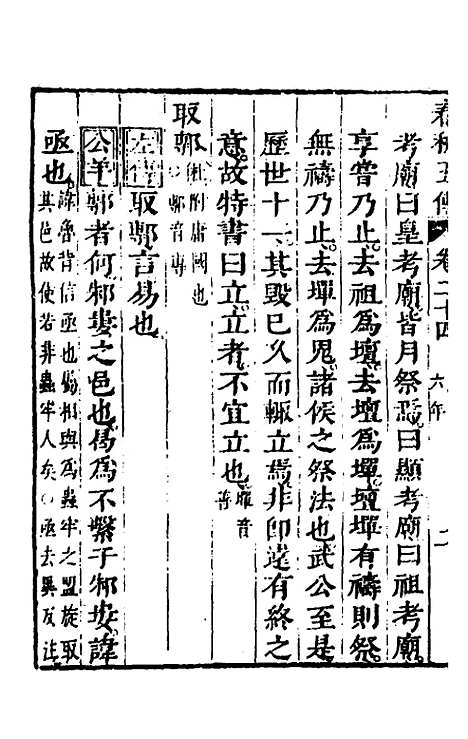 春秋五傳 卷二十四 六年 二
考廟曰皇考廟皆月祭焉曰顯考廟曰祖考廟
享嘗乃止去祖爲壇去壇爲墠壇墠有禱則祭
無禱乃止去墠爲鬼諸侯之祭法也武公至是
歷世十一其毀已久而輒立焉非卽遠有終之
意故特書曰立立者不宜立也 墠音善
取鄟 杜附庸國也○鄟音專
左傳取鄟言易也
公羊鄟者何邾婁之邑也曷爲不繫于邾婁諱
亟也 諱魯背信亟也屬相與爲蟲牢之盟旋取其邑故使若非蟲牢人矣○亟去異反注